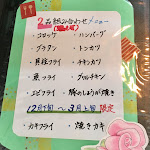 2品組み合わせメニュー
・コロッケ ・ハンバーグ
・グラタン ・トンカツ
・貝柱フライ ・チキンカツ
・魚フライ ・グリルチキン
・エビフライ ・豚のしょうが焼き
12月1日〜3月上旬 限定
・カキフライ ・焼きカキ